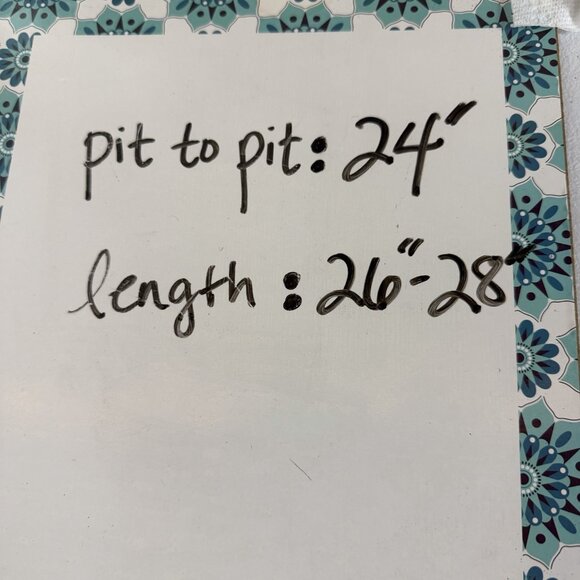 pit to pit: 24"
length: 26"-28"